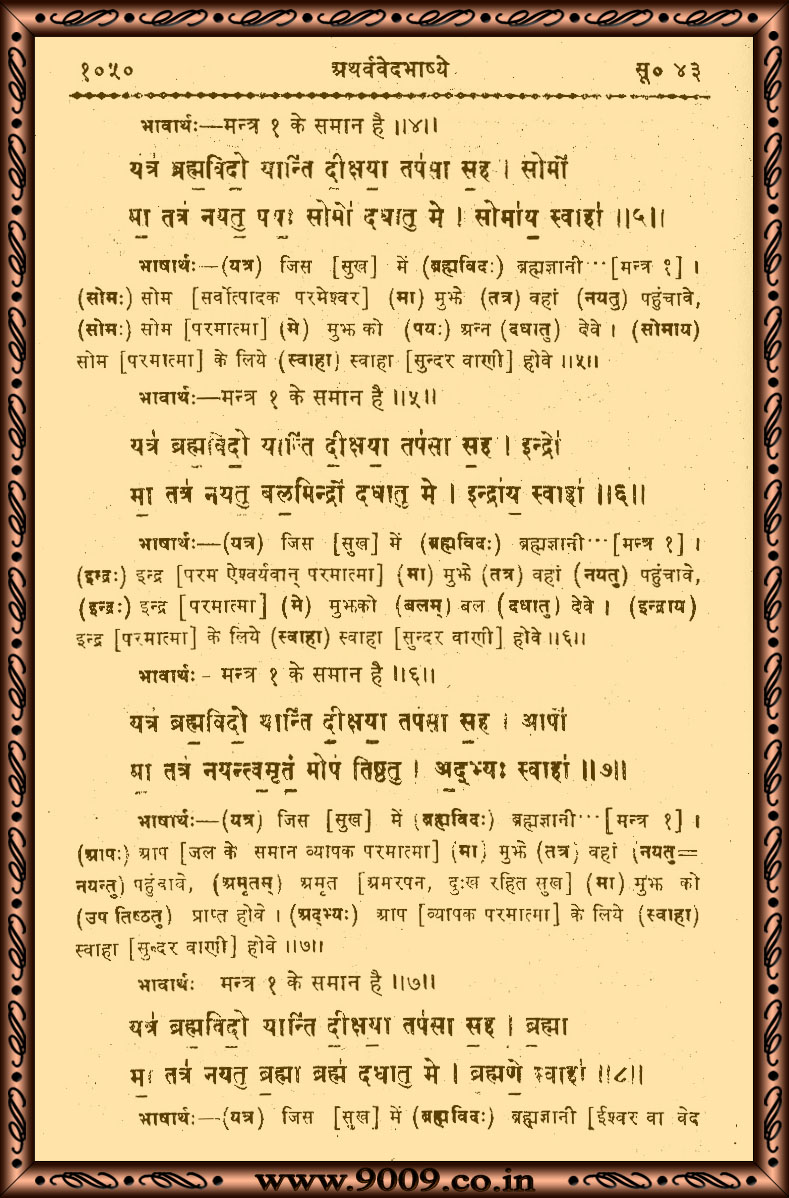 १०५० अथर्ववेदभाष्ये सू० ४३
भावार्थः—मन्त्र १ के समान है ॥४॥
यत्र॑ ब्रह्म॒विदो॒ यान्ति॑ दी॒क्षया॒ तप॑सा स॒ह । सोमो॑
मा॒ तत्र॑ नयतु॒ पयः॒ सोमो॑ दधातु मे । सोमा॑य॒ स्वाहा॑ ॥५॥
भाषार्थः—(यत्र) जिस [सुख] में (ब्रह्मविदः) ब्रह्मज्ञानी···[मन्त्र १] ।
(सोमः) सोम [सर्वोत्पादक परमेश्वर] (मा) मुझे (तत्र) वहां (नयतु) पहुंचावे,
(सोमः) सोम [परमात्मा] (मे) मुझ को (पयः) अन्न (दधातु) देवे । (सोमाय)
सोम [परमात्मा] के लिये (स्वाहा) स्वाहा [सुन्दर वाणी] होवे ॥५॥
भावार्थः—मन्त्र १ के समान है ॥५॥
यत्र॑ ब्रह्म॒विदो॒ यान्ति॑ दी॒क्षया॒ तप॑सा स॒ह । इन्द्रो॑
मा॒ तत्र॑ नयतु॒ बल॒मिन्द्रो॑ दधातु मे । इन्द्रा॑य॒ स्वाहा॑ ॥६॥
भाषार्थः—(यत्र) जिस [सुख] में (ब्रह्मविदः) ब्रह्मज्ञानी···[मन्त्र १] ।
(इन्द्रः) इन्द्र [परम ऐश्वर्यवान् परमात्मा] (मा) मुझे (तत्र) वहां (नयतु) पहुंचावे,
(इन्द्रः) इन्द्र [परमात्मा] (मे) मुझको (बलम्) बल (दधातु) देवे । (इन्द्राय)
इन्द्र [परमात्मा] के लिये (स्वाहा) स्वाहा [सुन्दर वाणी] होवे ॥६॥
भावार्थः - मन्त्र १ के समान है ॥६॥
यत्र॑ ब्रह्म॒विदो॒ यान्ति॑ दी॒क्षया॒ तप॑सा स॒ह । आपो॑
मा॒ तत्र॑ नयन्त्व॒मृतं॒ मोप॑ तिष्ठतु । अ॒द्भ्यः स्वाहा॑ ॥७॥
भाषार्थः—(यत्र) जिस [सुख] में (ब्रह्मविदः) ब्रह्मज्ञानी···[मन्त्र १] ।
(आपः) आप [जल के समान व्यापक परमात्मा] (मा) मुझे (तत्र) वहां (नयतु=
नयन्तु) पहुंचावे, (अमृतम्) अमृत [अमरपन, दुःख रहित सुख] (मा) मुझ को
(उप तिष्ठतु) प्राप्त होवे । (अद्भ्यः) आप [व्यापक परमात्मा] के लिये (स्वाहा)
स्वाहा [सुन्दर वाणी] होवे ॥७॥
भावार्थः मन्त्र १ के समान है ॥७॥
यत्र॑ ब्रह्म॒विदो॒ यान्ति॑ दी॒क्षया॒ तप॑सा स॒ह । ब्र॒ह्मा
मा॒ तत्र॑ नयतु ब्र॒ह्मा ब्रह्म॑ दधातु मे । ब्र॒ह्मणे॒ स्वाहा॑ ॥८॥
भाषार्थः—(यत्र) जिस [सुख] में (ब्रह्मविदः) ब्रह्मज्ञानी [ईश्वर वा वेद
www.9009.co.in